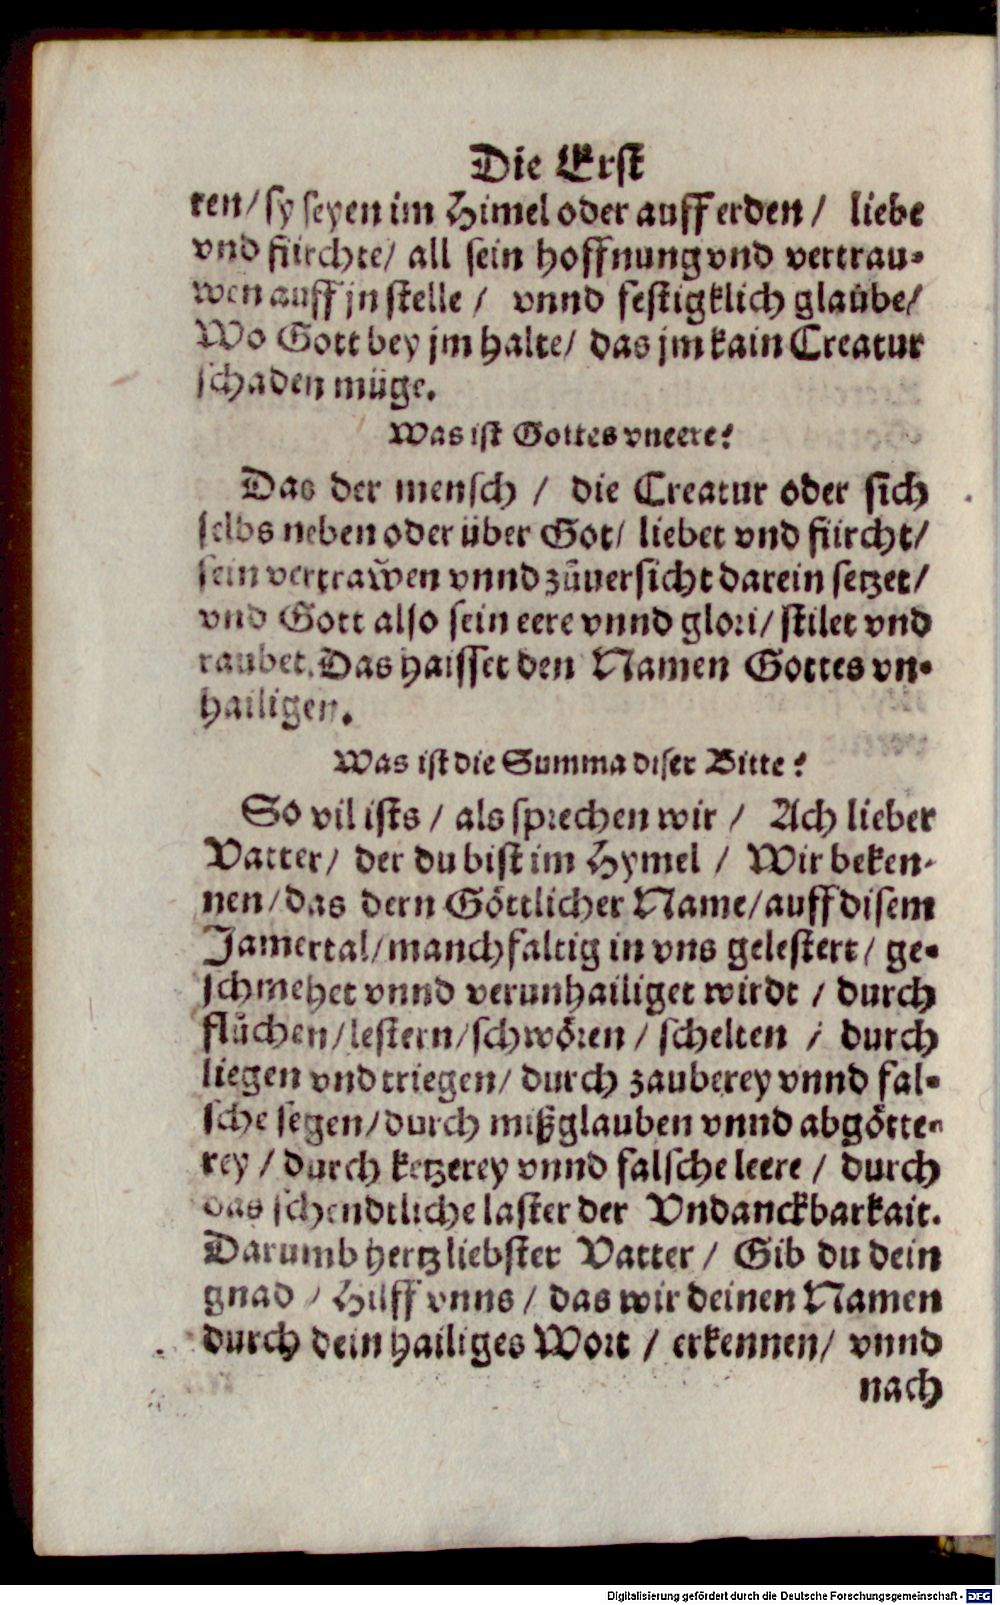 Die Erst
ren/ sy seyen im Himel oder auff erden / liebe
vnd fürchte/ all sein hoffnung vnd vertrau-
wen auff jn stelle / vnnd festigklich glaube/
Wo Gott bey jm halte/ das jm kain Creatur
schaden müge.
Was ist Gottes vneere?
Das der mensch / die Creatur oder sich
selbs neben oder über Got/ liebet vnd fürcht/
sein vertrawen vnnd zůuersicht darein setzet/
vnd Gott also sein eere vnnd glori/ stilet vnd
raubet. Das haisset den Namen Gottes vn-
hailigen.
Was ist die Summa diser Bitte?
So vil ists / als sprechen wir / Ach lieber
Vatter/ der du bist im Hymel / Wir beken-
nen/ das dern Göttlicher Name/ auff disem
Jamertal/ manchfaltig in vns gelestert/ ge-
schmehet vnnd verunhailiget wirdt / durch
flůchen/ lestern/ schwören / schelten / durch
liegen vnd triegen/ durch zauberey vnnd fal-
sche segen/ durch mißglauben vnnd abgötte-
rey / durch ketzerey vnnd falsche leere / durch
das schendtliche laster der Vndanckbarkait.
Darumb hertzliebster Vatter / Gib du dein
gnad / Hilff vnns / das wir deinen Namen
durch dein hailiges Wort / erkennen/ vnnd
nach
Digitalisierung gefördert durch die Deutsche Forschungsgemeinschaft - DFG